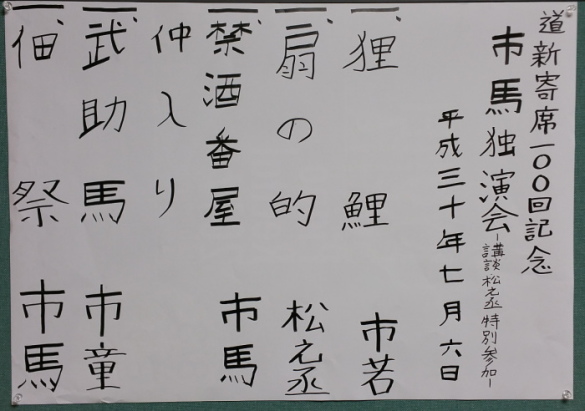 道新寄席一〇〇回記念
市馬独演会-講談松之丞特別参加-
平成三十年七月六日
一、狸鯉 市若
一、扇の的 松之丞
一、禁酒番屋 市馬
仲入り
一、武助馬 市童
一、佃祭 市馬